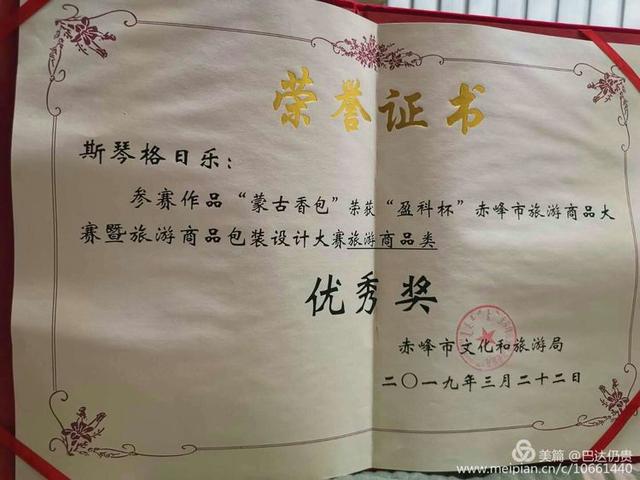 荣誉证书
斯琴格日乐：
参赛作品“蒙古香包”荣获“盈科杯”赤峰市旅游商品大
赛暨旅游商品包装设计大赛旅游商品类
优秀奖
赤峰市文化和旅游局
二〇一九年三月二十二日
美篇 @巴达仍贵
www.meipian.cn/c/10661440